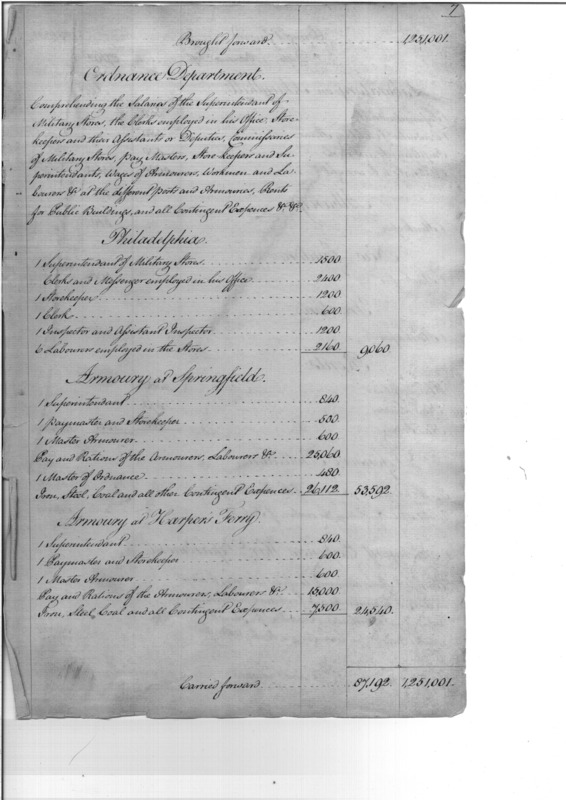 7
Brought forward 1,251,001.
Ordnance Department.
Comprehending the Salaries of the Superintendant of
Military Stores, the Clerks employed in his Office, Store-
keepers and their Assistants or Deputies, Commissaries
of Military Stores, Pay Masters, Store-keepers and Su-
perintendants, Wages of Armourers, Workmen and La-
bourers &c. at the different posts and Armouries, Rents
for Public Buildings, and all Contingent Expences &c. &c.
Philadelphia.
1 Superintendant of Military Stores 1500.
Clerks and Messenger employed in his Office 2400
1 Storekeeper 1200
1 Clerk 600
1 Inspector and Assistant Inspector 1200
6 Labourers employed in the Stores 2160 9,060
Armoury at Springfield.
1 Superintendant 840.
1 Paymaster and Storekeeper 500.
1 Master Armourer 600
Pay and Rations of the Armourers, Labourers &c. 25,060
1 Master of Ordnance 480.
Iron, Steel, Coal and all other Contingent Expences 26,112. 53,592.
Armoury at Harper's Ferry.
1 Superintendant 840.
1 Paymaster and Storekeeper 600.
1 Master Armourer 600.
Pay and Rations of the Armourers, Labourers &c. 15,000
Iron, Steel, Coal and all Contingent Expences 7,500 24,540.
Carried forward 87,192. 1,251,001.